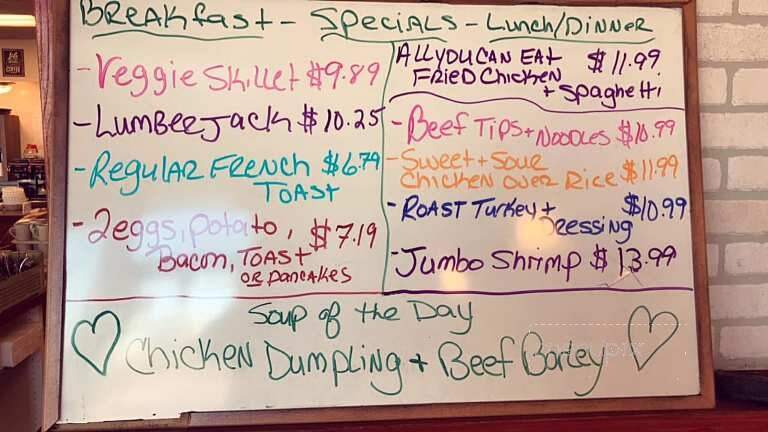 BREAKfast - SPECIALS - LUNCH/DINNER
- Veggie Skillet $9.89
- LUMBERJACK $10.25
- REGULAR FRENCH $6.79
TOAST
- 2eggs, potato, $7.19
Bacon, TOAST
OR pancakes
ALL YOU CAN EAT $11.99
FRIED Chicken
+ Spaghetti
- Beef Tips + NOODLES $10.99
- Sweet + Sour
Chicken over Rice $11.99
- ROAST Turkey + $10.99
Dressing
- Jumbo Shrimp $13.99
Soup of the Day
Chicken Dumpling + Beef Barley